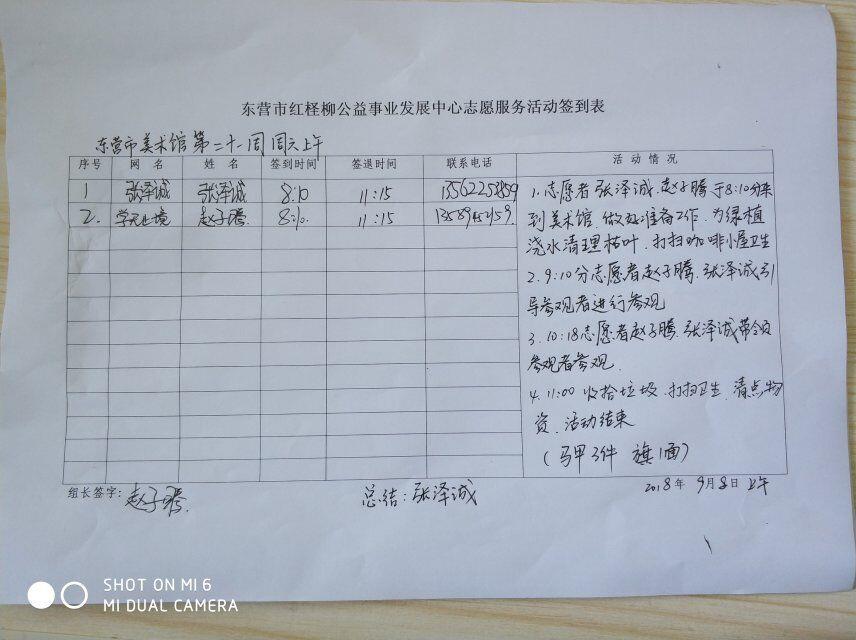 东营市红柽柳公益事业发展中心志愿服务活动签到表
东营市美术馆 第二十一周 周六上午
序号 网 名 姓 名 签到时间 签退时间 联系电话 活 动 情 况
1 张泽诚 张泽诚 8:10 11:15
2. 学无止境 赵子腾 8:10. 11:15
1.志愿者张泽诚.赵子腾于8:10分来
到美术馆.做好准备工作.为绿植
浇水清理枯叶.打扫咖啡小屋卫生
2.9:10分志愿者赵子腾.张泽诚引
导参观者进行参观
3.10:18志愿者赵子腾.张泽诚带领
参观者参观.
4.11:00 收拾垃圾.打扫卫生.清点物
资.活动结束
(马甲3件 旗1面)
组长签字: 赵子腾. 总结:张泽诚 2018年 9月8日 上午
SHOT ON MI 6
MI DUAL CAMERA